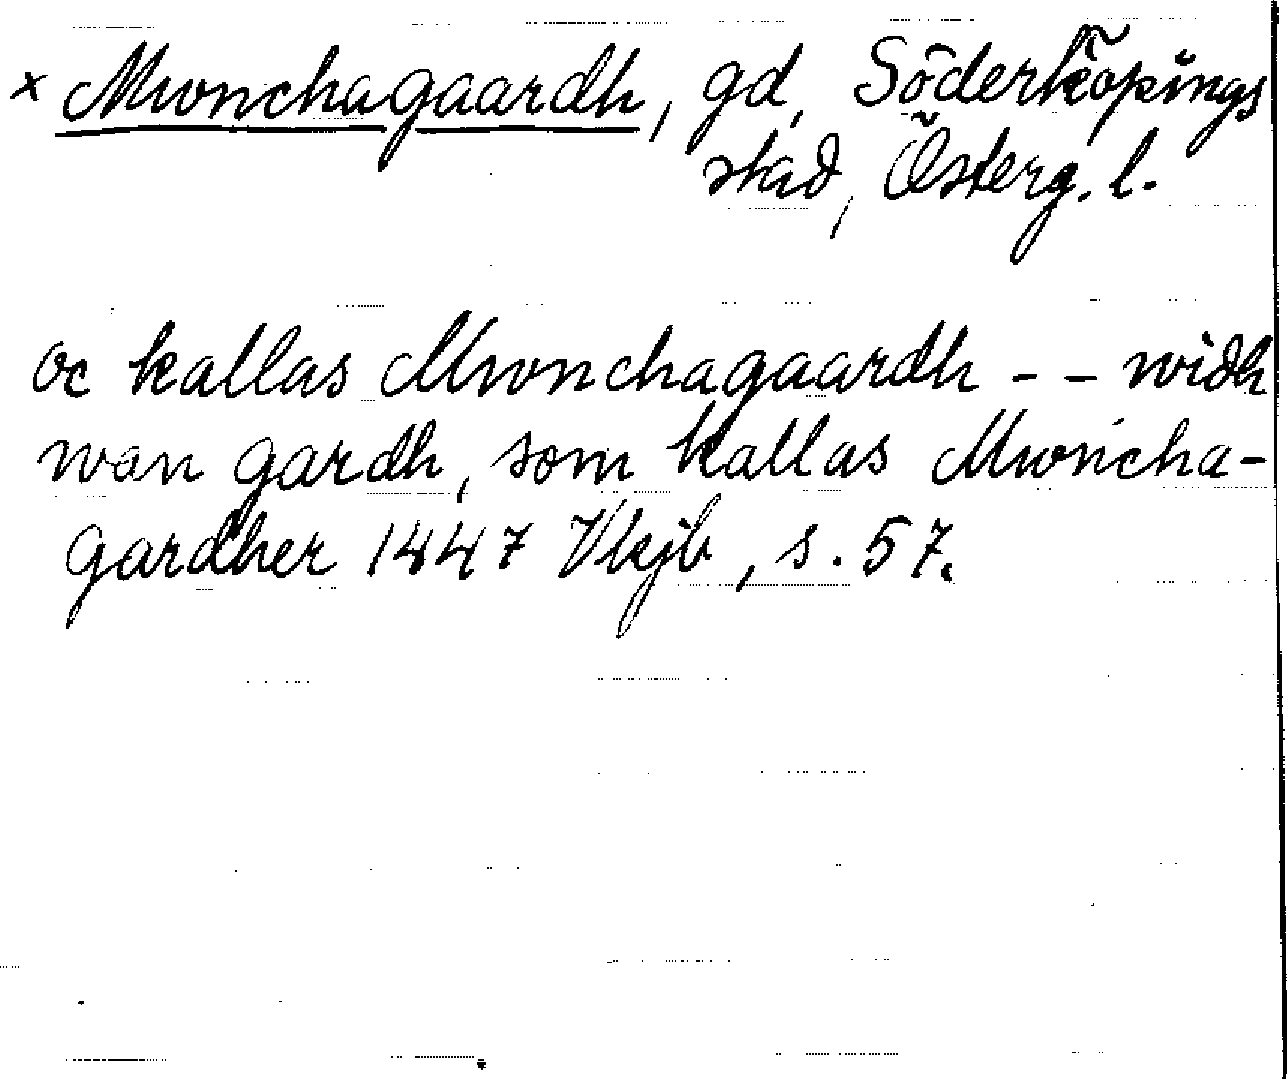 x Mwnchagaardh, gd, Söderköpings
stad, Österg. l.
oc kallas Mwnchagaardh - - widh
wan gardh, som kallas Mwncha-
gardher 1447 Vkjb, s. 57.